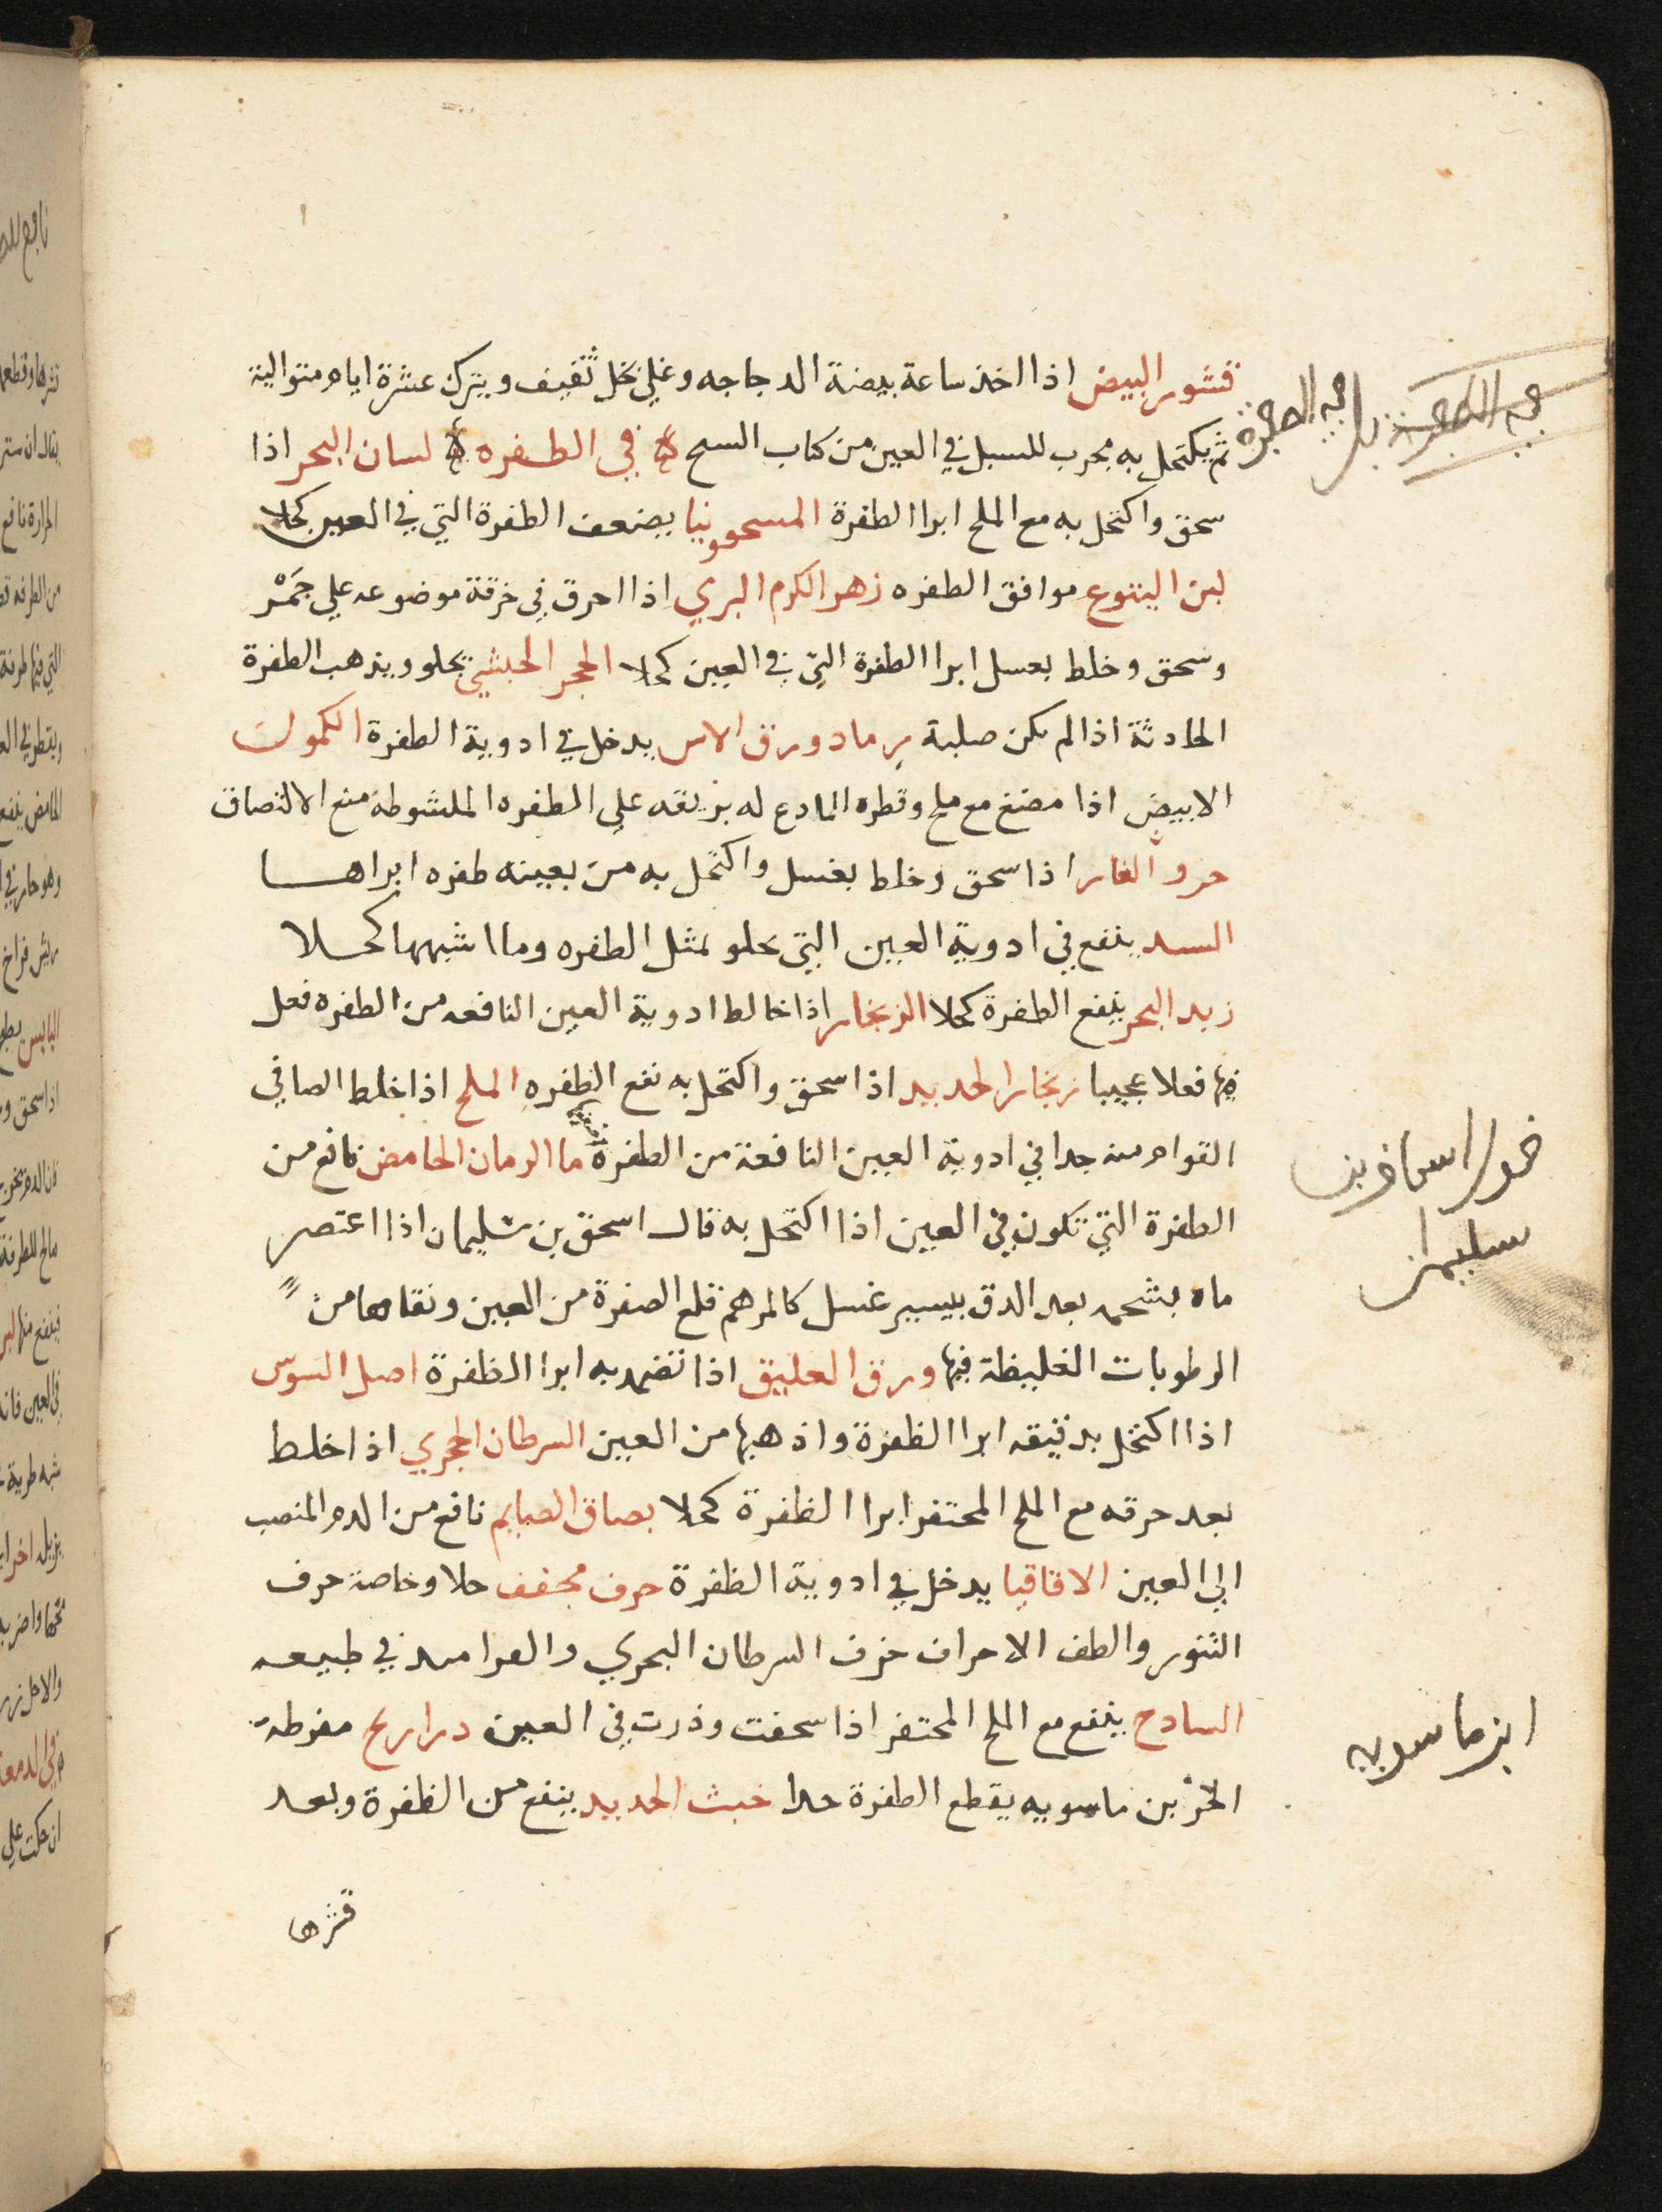 قشور البيض اذا اخذ ساعة بيضة الدجاجه وغلي بخل ثقيف ويترك عشرة ايام متوالية
ثم يكتحل به مجرب للسبل في العين من كتاب السح في الطفره لسان البحر اذا
سحق واكتحل به مع الملح ابرا الطفرة المسحوونيا يضعف الطفرة التي في العين كحلا
لبن اليتوع موافق الطفره زهر الكرم البري اذا احرق في خرقة موضوعه علي جَمْر
وسحق وخلط بعسل ابرا الطفرة التي في العين كحلا الحجر الحبشي يجلو ويذهب الطفرة
الحادثة اذا لم تكن صلبة رماد ورق الاس يدخل في ادوية الطفرة الكمون
الابيض اذا مضغ مع ملح وقطره المادع له بريقه علي الطفره الملشوطه منع الالتصاق
خرو الفار اذا سحق وخلط بعسل واكتحل به من بعينه طفره ابراها
السد ينفع في ادوية العين التي تجلو بمثل الطفره وما اشبهها كحلا
زبد البحر ينفع الطفرة كحلا الزنجار اذا خالط ادوية العين النافعه من الطفره فعل
فيها فعلا عجيبا زنجار الحديد اذا سحق واكتحل به نفع الطفره الملح اذا خلط الصافي
القوام منه جدا في ادوية العين النافعة من الطفرة ما الرمان الحامض نافع من
الطفرة التي تكون في العين اذا اكتحل به قال اسحق بن سليمان اذا اعتصر
ماه بشحمه بعد الدق بيسير عسل كالمرهم قلع الصفرة من العين ونقاها من
الرطوبات الغليظة فيها ورق العليق اذا تضمد به ابرا الظفرة اصل السوس
اذا اكتحل بدقيقه ابرا الظفرة واذهبها من العين السرطان الحجري اذا خلط
بعد حرقه مع الملح المحتفر ابرا الظفرة كحلا بصاق الصايم نافع من الدم المنصب
الي العين الاقاقيا يدخل في ادوية الظفرة حرف مجفف حلا وخاصة حرف
التنور والطف الاحراف خزف السرطان البحري والعرامد في طبيعه
السادج ينفع مع الملح المحتفر اذا سحقت وذرت في العين دراريح مفرطة
الحر بن ماسويه يقطع الطفرة جدا خبث الحديد ينفع من الظفرة وبعد
قشرها
في الظفرة
اسحاق بن
سليمان
ابن ماسويه